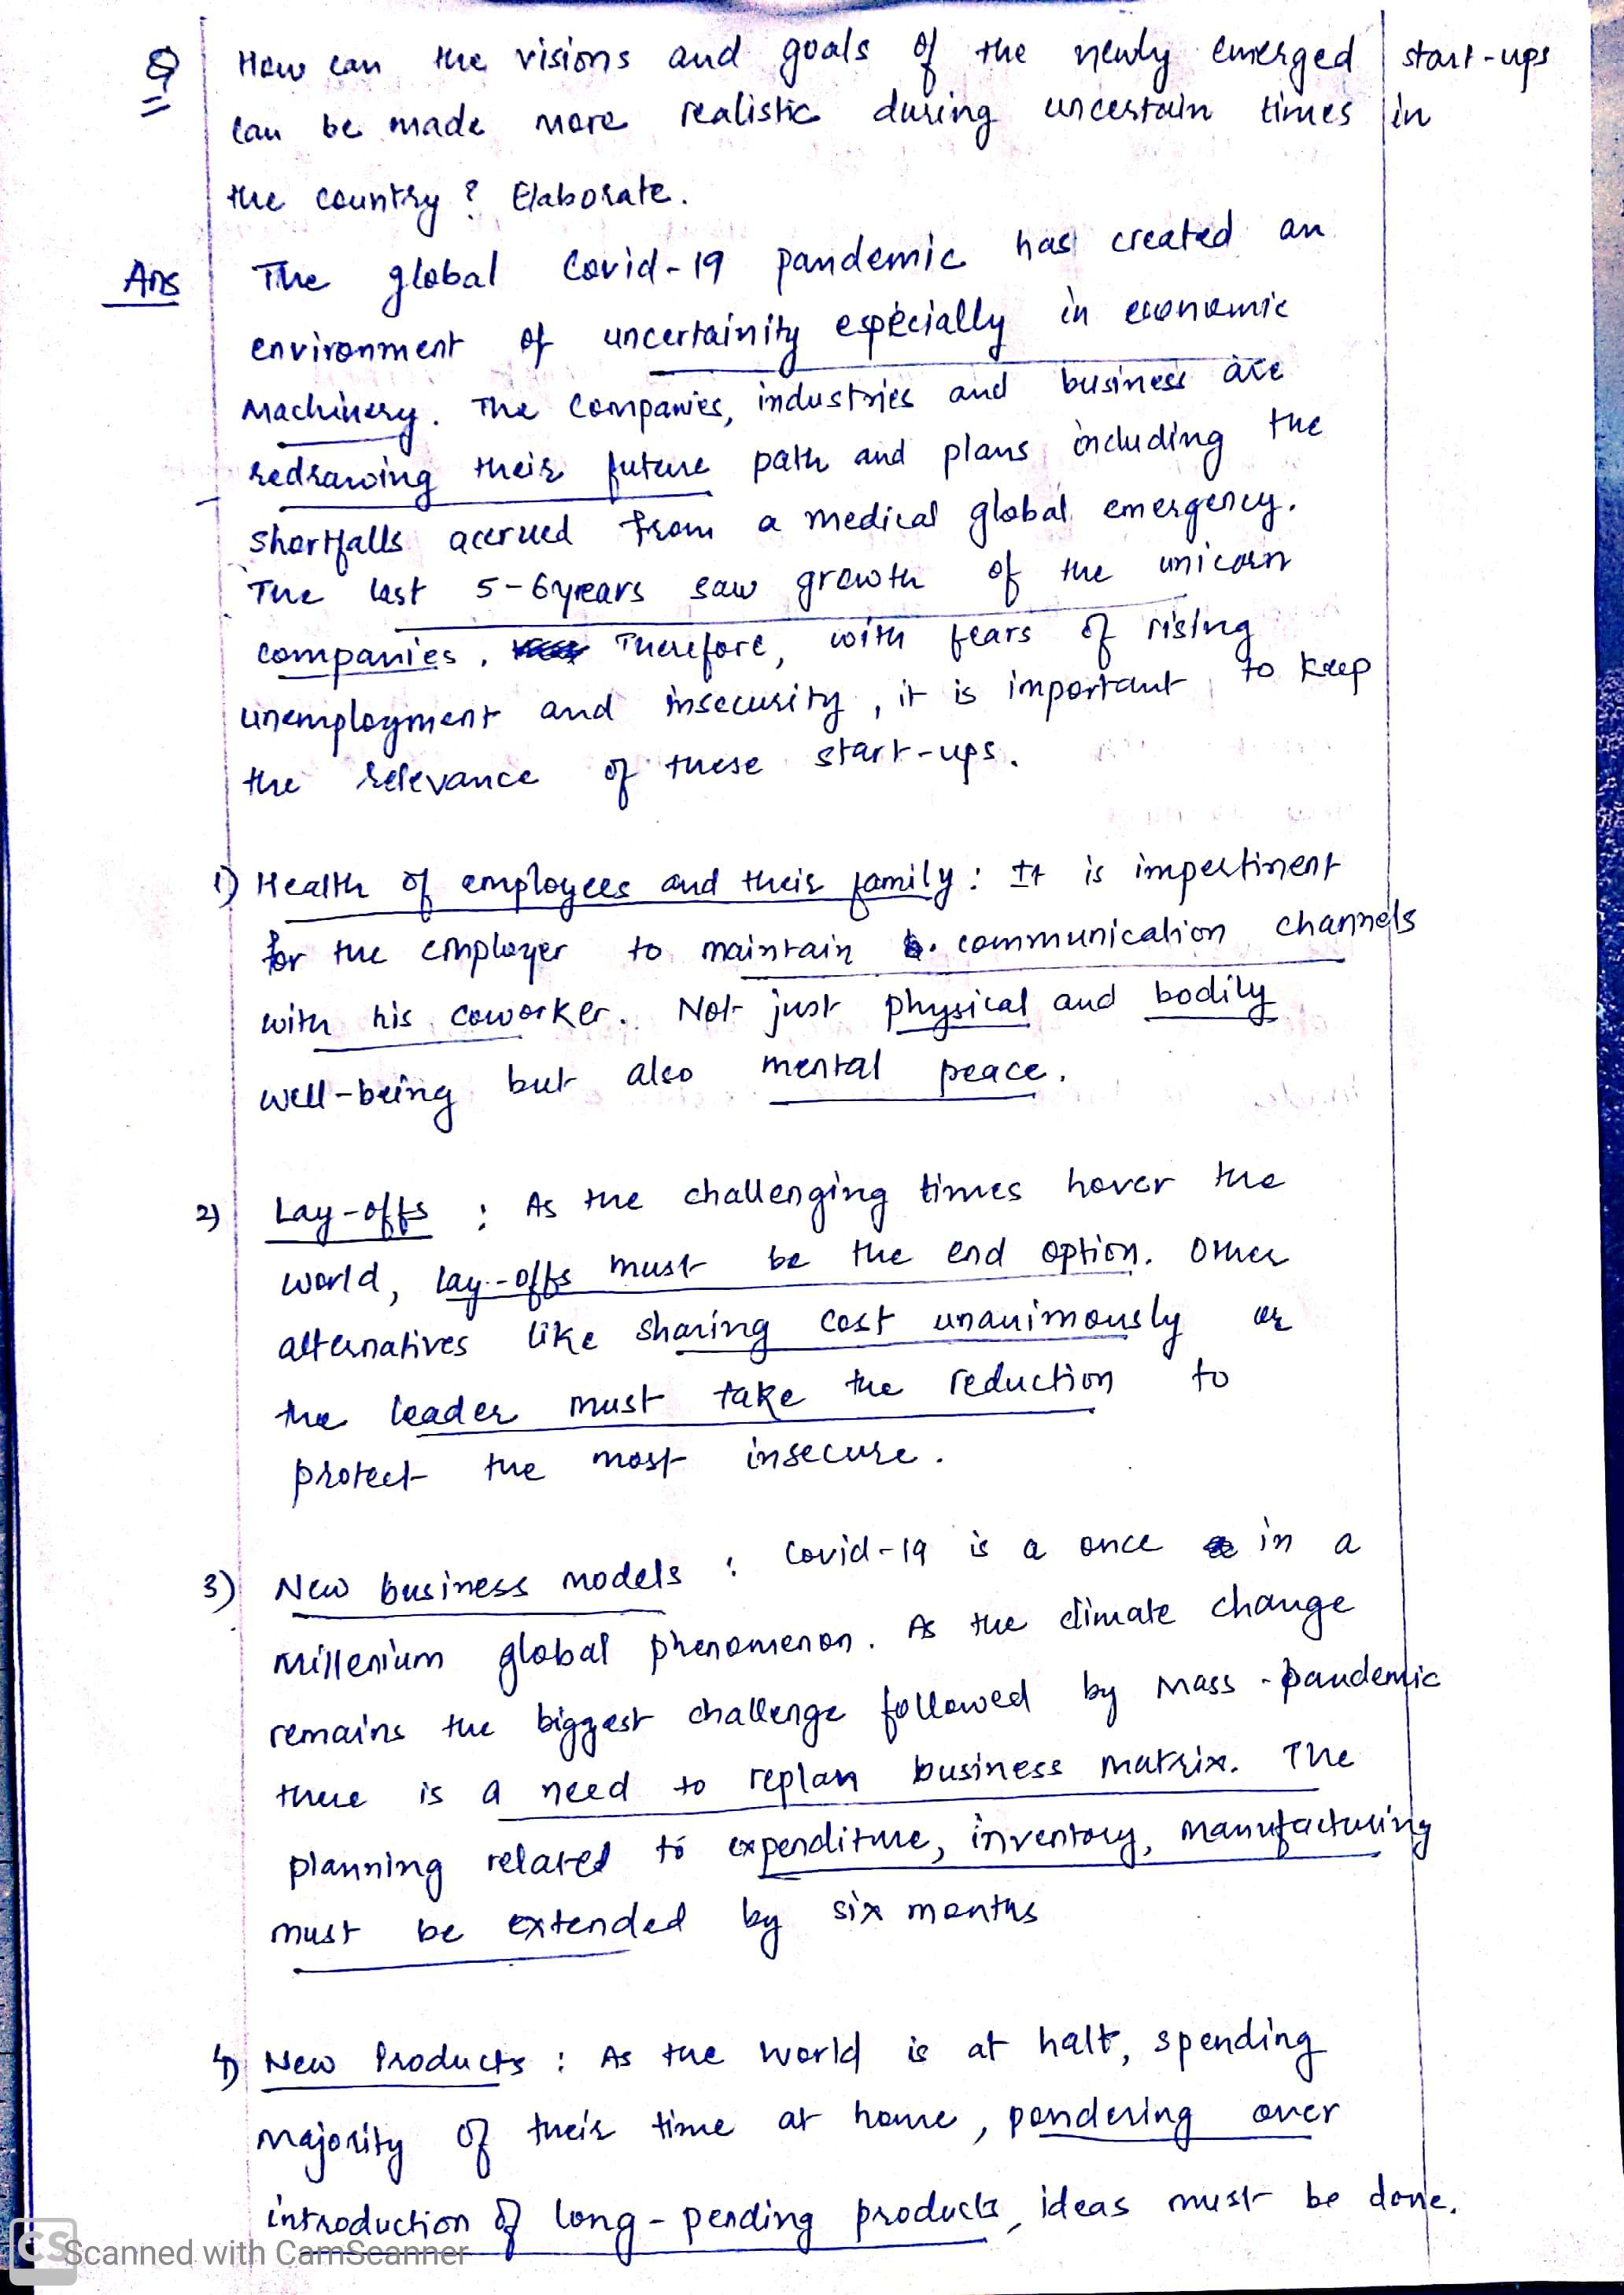 Q How can the visions and goals of the newly emerged start-ups
can be made more realistic during uncertain times in
the country? Elaborate.
Ans The global Covid-19 pandemic has created an
environment of uncertainity especially in economic
Machinery. The companies, industries and business are
redrawing their future path and plans including the
shortfalls accrued from a medical global emergency.
The last 5-6years saw growth of the unicorn
companies. Therefore, with fears of rising
unemployment and insecurity, it is important to keep
the relevance of these start-ups.
1) Health of employees and their family: It is impertinent
for the employer to maintain communication channels
with his coworker. Not just physical and bodily
well-being but also mental peace.
2) Lay-offs : As the challenging times hover the
world, lay-offs must be the end option. Other
alternatives like sharing cost unanimously or
the leader must take the reduction to
protect the most insecure.
3) New business models : Covid-19 is a once in a
millenium global phenomenon. As the climate change
remains the biggest challenge followed by mass-pandemic
there is a need to replan business matrix. The
planning related to expenditure, inventory, manufacturing
must be extended by six months
4) New Products : As the world is at halt, spending
majority of their time at home, pondering over
introduction of long-pending products, ideas must be done.
CS Scanned with CamScanner